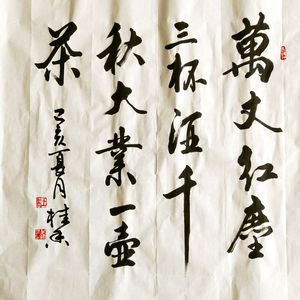 萬丈红塵
三杯酒千
秋大業一壺
茶
己亥夏月桂